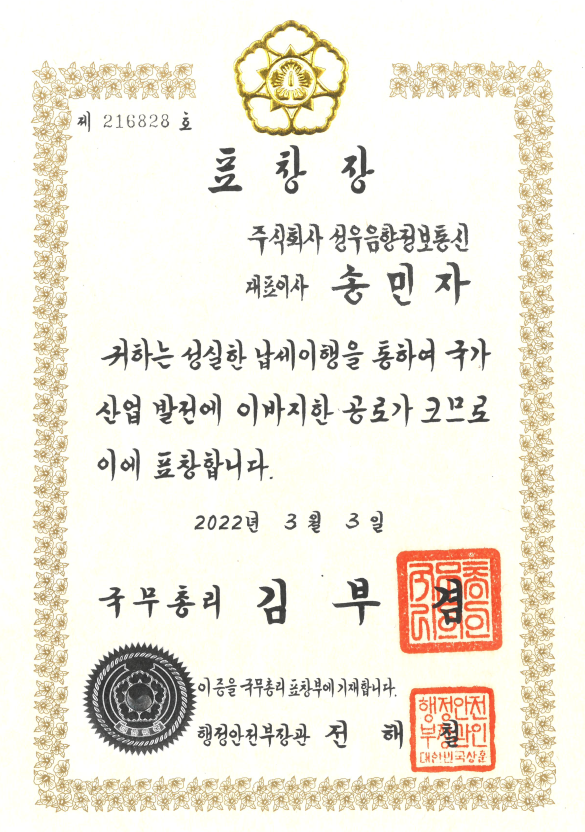 제 216828 호
표 창 장
주식회사 성우음향정보통신
대표이사 송 민 자
귀하는 성실한 납세이행을 통하여 국가
산업 발전에 이바지한 공로가 크므로
이에 표창합니다.
2022년 3 월 3 일
국무총리 김 부 겸
이 증을 국무총리 표창부에 기재합니다.
행정안전부장관 전 해 철
행정안전
부장관인
대한민국상훈